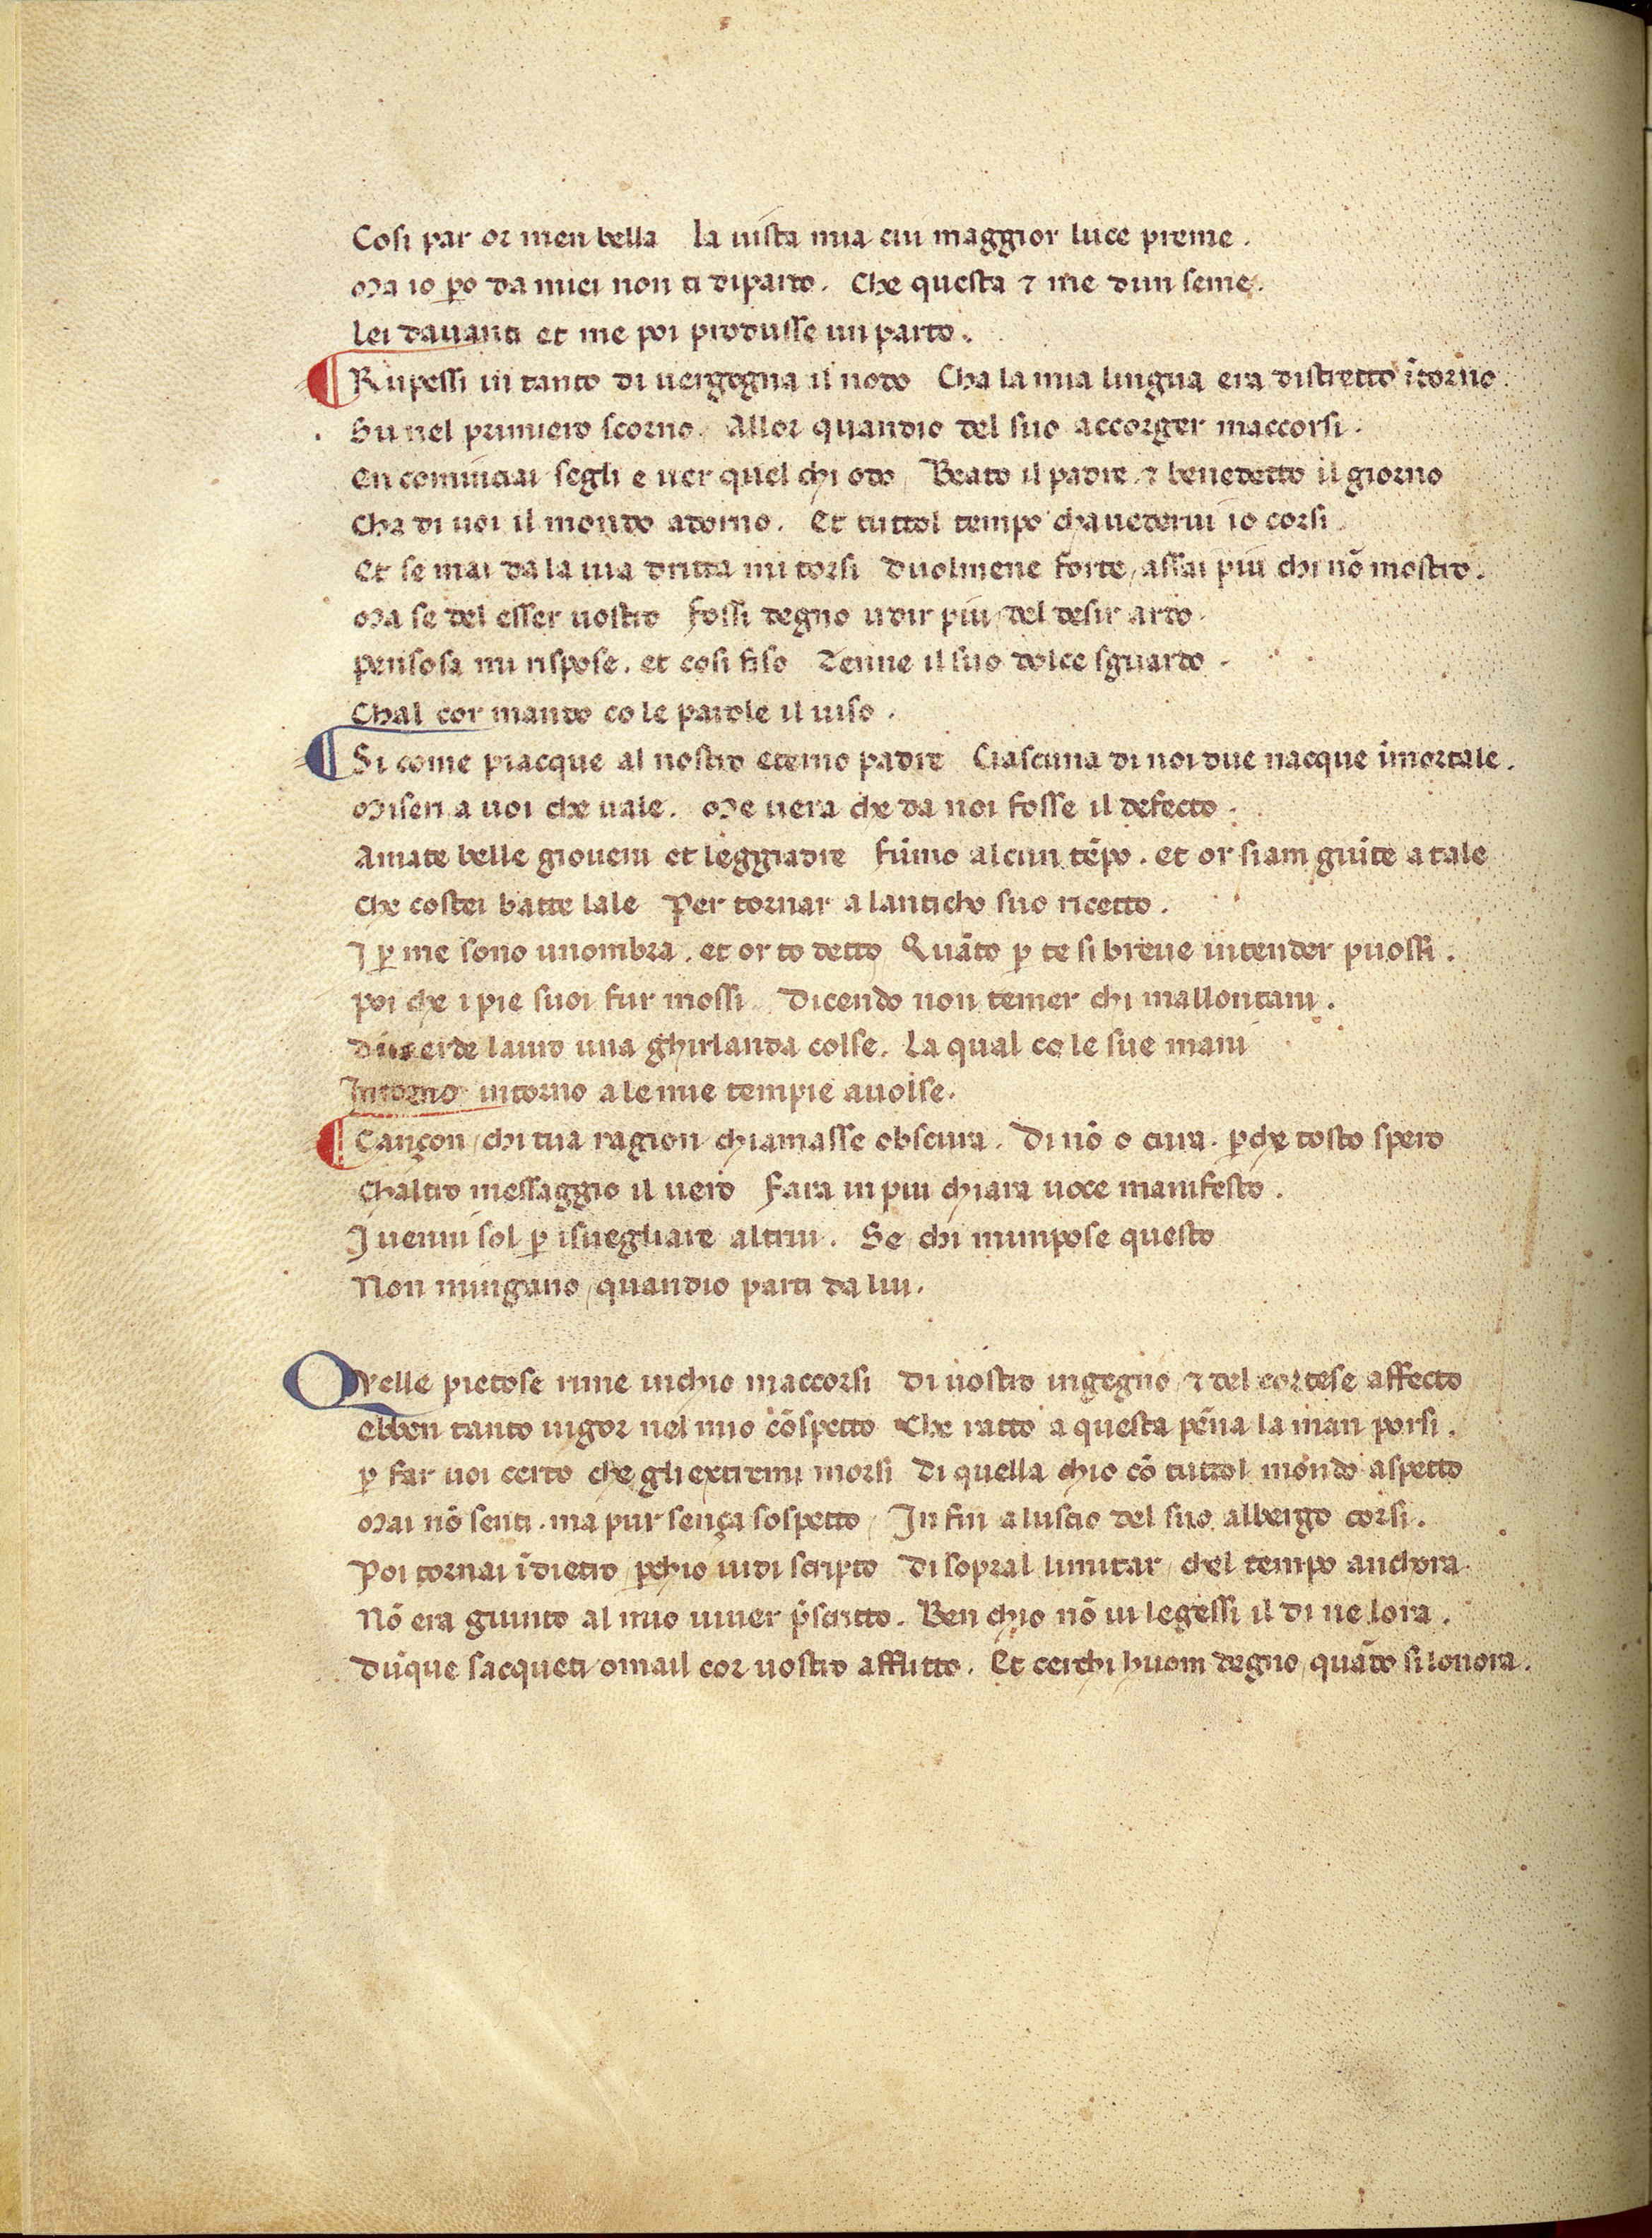 Cosi par or men bella la uista mia cui maggior luce preme.
Ma io ꝑo da miei non ti diparto. Che questa ⁊ me dun seme.
Lei dauanti et me poi produsse un parto.
¶ Rupessi in tanto di uergogna il nodo Cha la mia lingua era distretto ĩtorno.
Su nel primiero scorno. Allor quandio del suo accorger maccorsi.
En cominciai segli e uer quel chi odo, Beato il padre, ⁊ benedetto il giorno
Cha di uoi il mondo adorno. Et tuttol tempo cha uederui io corsi.
Et se mai da la uia dritta mi torsi Duolmene forte, assai piu chi nõ mostro.
Ma se del esser uostro Fossi degno udir piu, del desir ardo.
Pensosa mi rispose. et cosi fiso Tenne il suo dolce sguardo.
Chal cor mando co le parole il uiso.
¶ Si come piacque al nostro eterno padre Ciascuna di noi due nacque ĩmortale.
Miseri a uoi che uale. Me uera che da noi fosse il defecto.
Amate belle gioueni et leggiadre Fũmo alcun tẽpo. et or siam giũte a tale
Che costei batte lale Per tornar a lanticho suo ricetto.
I ꝑ me sono unombra. et or to detto Quãto ꝑ te si breue intender puossi.
Poi che i pie suoi fur mossi Dicendo non temer chi mallontani.
Diuerde lauro una ghirlanda colse. La qual co le sue mani
Intorno intorno a le mie tempie auolse.
¶ Cançon, chi tua ragion chiamasse obscura. Di nõ o cura. ꝑche tosto spero
Chaltro messaggio il uero Fara in piu chiara uoce manifesto.
I uenni sol ꝑ isuegliare altrui. Se chi mimpose questo
Non mingano, quandio parti da lui.
Qvelle pietose rime inchio maccorsi Di uostro ingegno, ⁊ del cortese affecto
ebben tanto uigor nel mio cõspetto Che ratto a questa pẽna la man porsi.
ꝑ far uoi certo che gli extremi morsi Di quella chio cõ tuttol mondo aspetto
Mai nõ senti. ma pur sença sospetto, In fin a luscio del suo albergo corsi.
Poi tornai ĩdietro, ꝑchio uidi scripto Di sopral limitar, chel tempo anchora.
Nõ era giunto al mio uiuer p̃scritto. Ben chio nõ ui legessi il di ne lora.
Dũque sacqueti omail cor uostro afflitto. Et cerchi huom degno, quãdo si lonora.